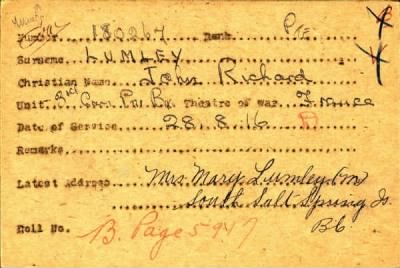 Number 180267 Rank Pte
Surname LUMLEY
Christian Name John Richard
Unit 3rd Can. Pnr. Bn. Theatre of War France
Date of Service 28.8.16
Remarks
Latest Address Mrs. Mary Lumley (m)
South Salt Spring Is.
B6
Roll No. B. Page 5947